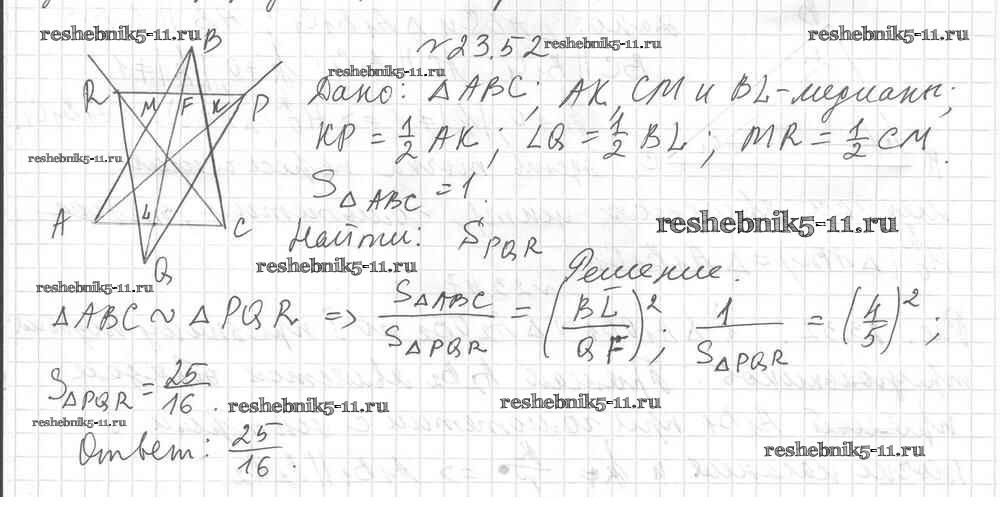 reshebnik5-11.ru
B
№23.52 reshebnik5-11.ru
reshebnik5-11.ru
reshebnik5-11.ru
R M F K P
Дано: △ABC; AK, CM и BL-медианы;
KP = 1/2 AK; LQ = 1/2 BL; MR = 1/2 CM.
reshebnik5-11.ru
S△ABC = 1.
reshebnik5-11.ru
A L C
Найти: SPQR
Q
reshebnik5-11.ru
Решение.
reshebnik5-11.ru
△ABC ~ △PQR => S△ABC / S△PQR = (BL / QF)²; 1 / S△PQR = (4/5)²;
S△PQR = 25/16.
reshebnik5-11.ru
reshebnik5-11.ru
reshebnik5-11.ru
Ответ: 25/16.
reshebnik5-11.ru